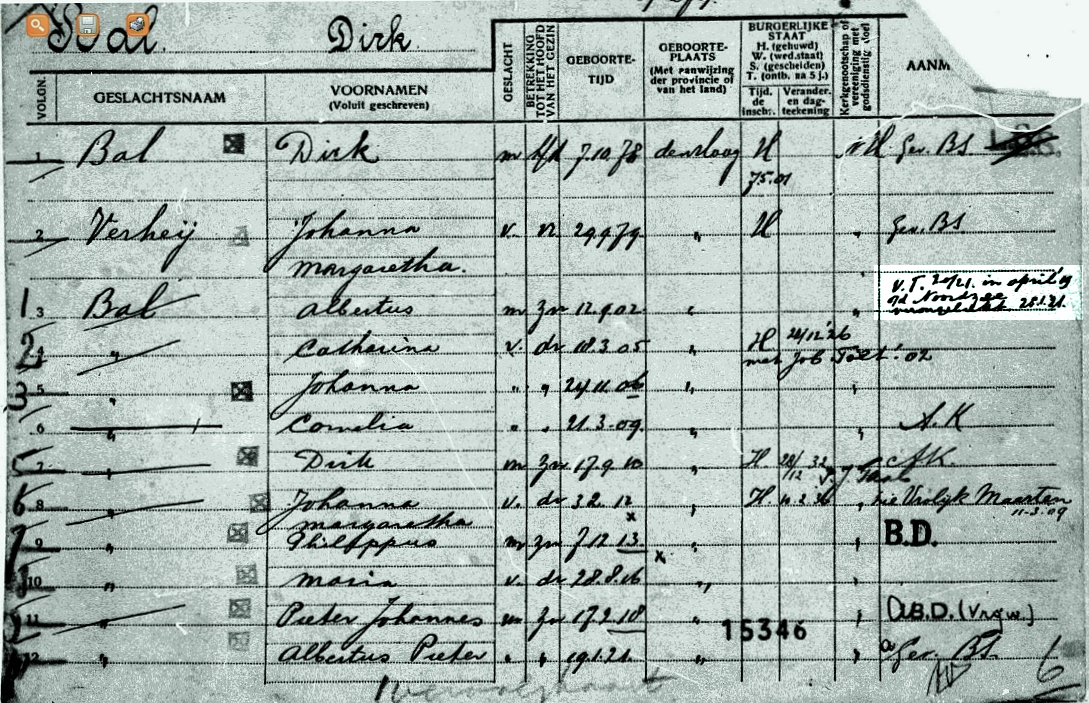 Bal. Dirk
VOLGN.
GESLACHTSNAAM
VOORNAMEN
(Voluit geschreven)
GESLACHT
BETREKKING TOT HET HOOFD VAN HET GEZIN
GEBOORTE-
TIJD
GEBOORTE-
PLAATS
(Met aanwijzing
der provincie of
van het land)
BURGERLIJKE
STAAT
H. (gehuwd)
W. (wed.staat)
S. (gescheiden)
T. (ontb. na 5 j.)
Tijd. de inschr.
Verander. en dag-teekening
Kerkgenootschap of vereeniging met godsdienstig doel
AANM
1 Bal Dirk m hfd 7.10.78 den Haag H NH Gev. BS
75.01
2 Verheij Johanna v. vr 29.9.79 " H " Gev. BS
Margaretha.
V.T. 20/21. in april
1 3 Bal Albertus m zn 12.9.02 "
o/d Noordzee
verongelukt 25.1.21.
2 4 " Catharina v. dr 18.3.05 " H 24/12 '26
met Job '02
3 5 " Johanna " " 24.11.06 "
6 " Cornelia " " 21.3.09. " A.K
5 7 " Dirk m zn 17.9.10 " H 28/12 32 AK.
6 8 " Johanna v. dr 3.2.12 " H 11.2.36 " zie Vrolijk Maarten
Margaretha
11-3-09
7 9 " Philippus m zn 7.12.13 " " B.D.
8 10 " Maria v. dr 28.8.16 " "
11 " Pieter Johannes m zn 17.2.18 " " a B.D. (Vrouw)
15346
12 " Albertus Pieter " " 19.1.21. " " a Gev. BS.
1 vervolgkaart
6